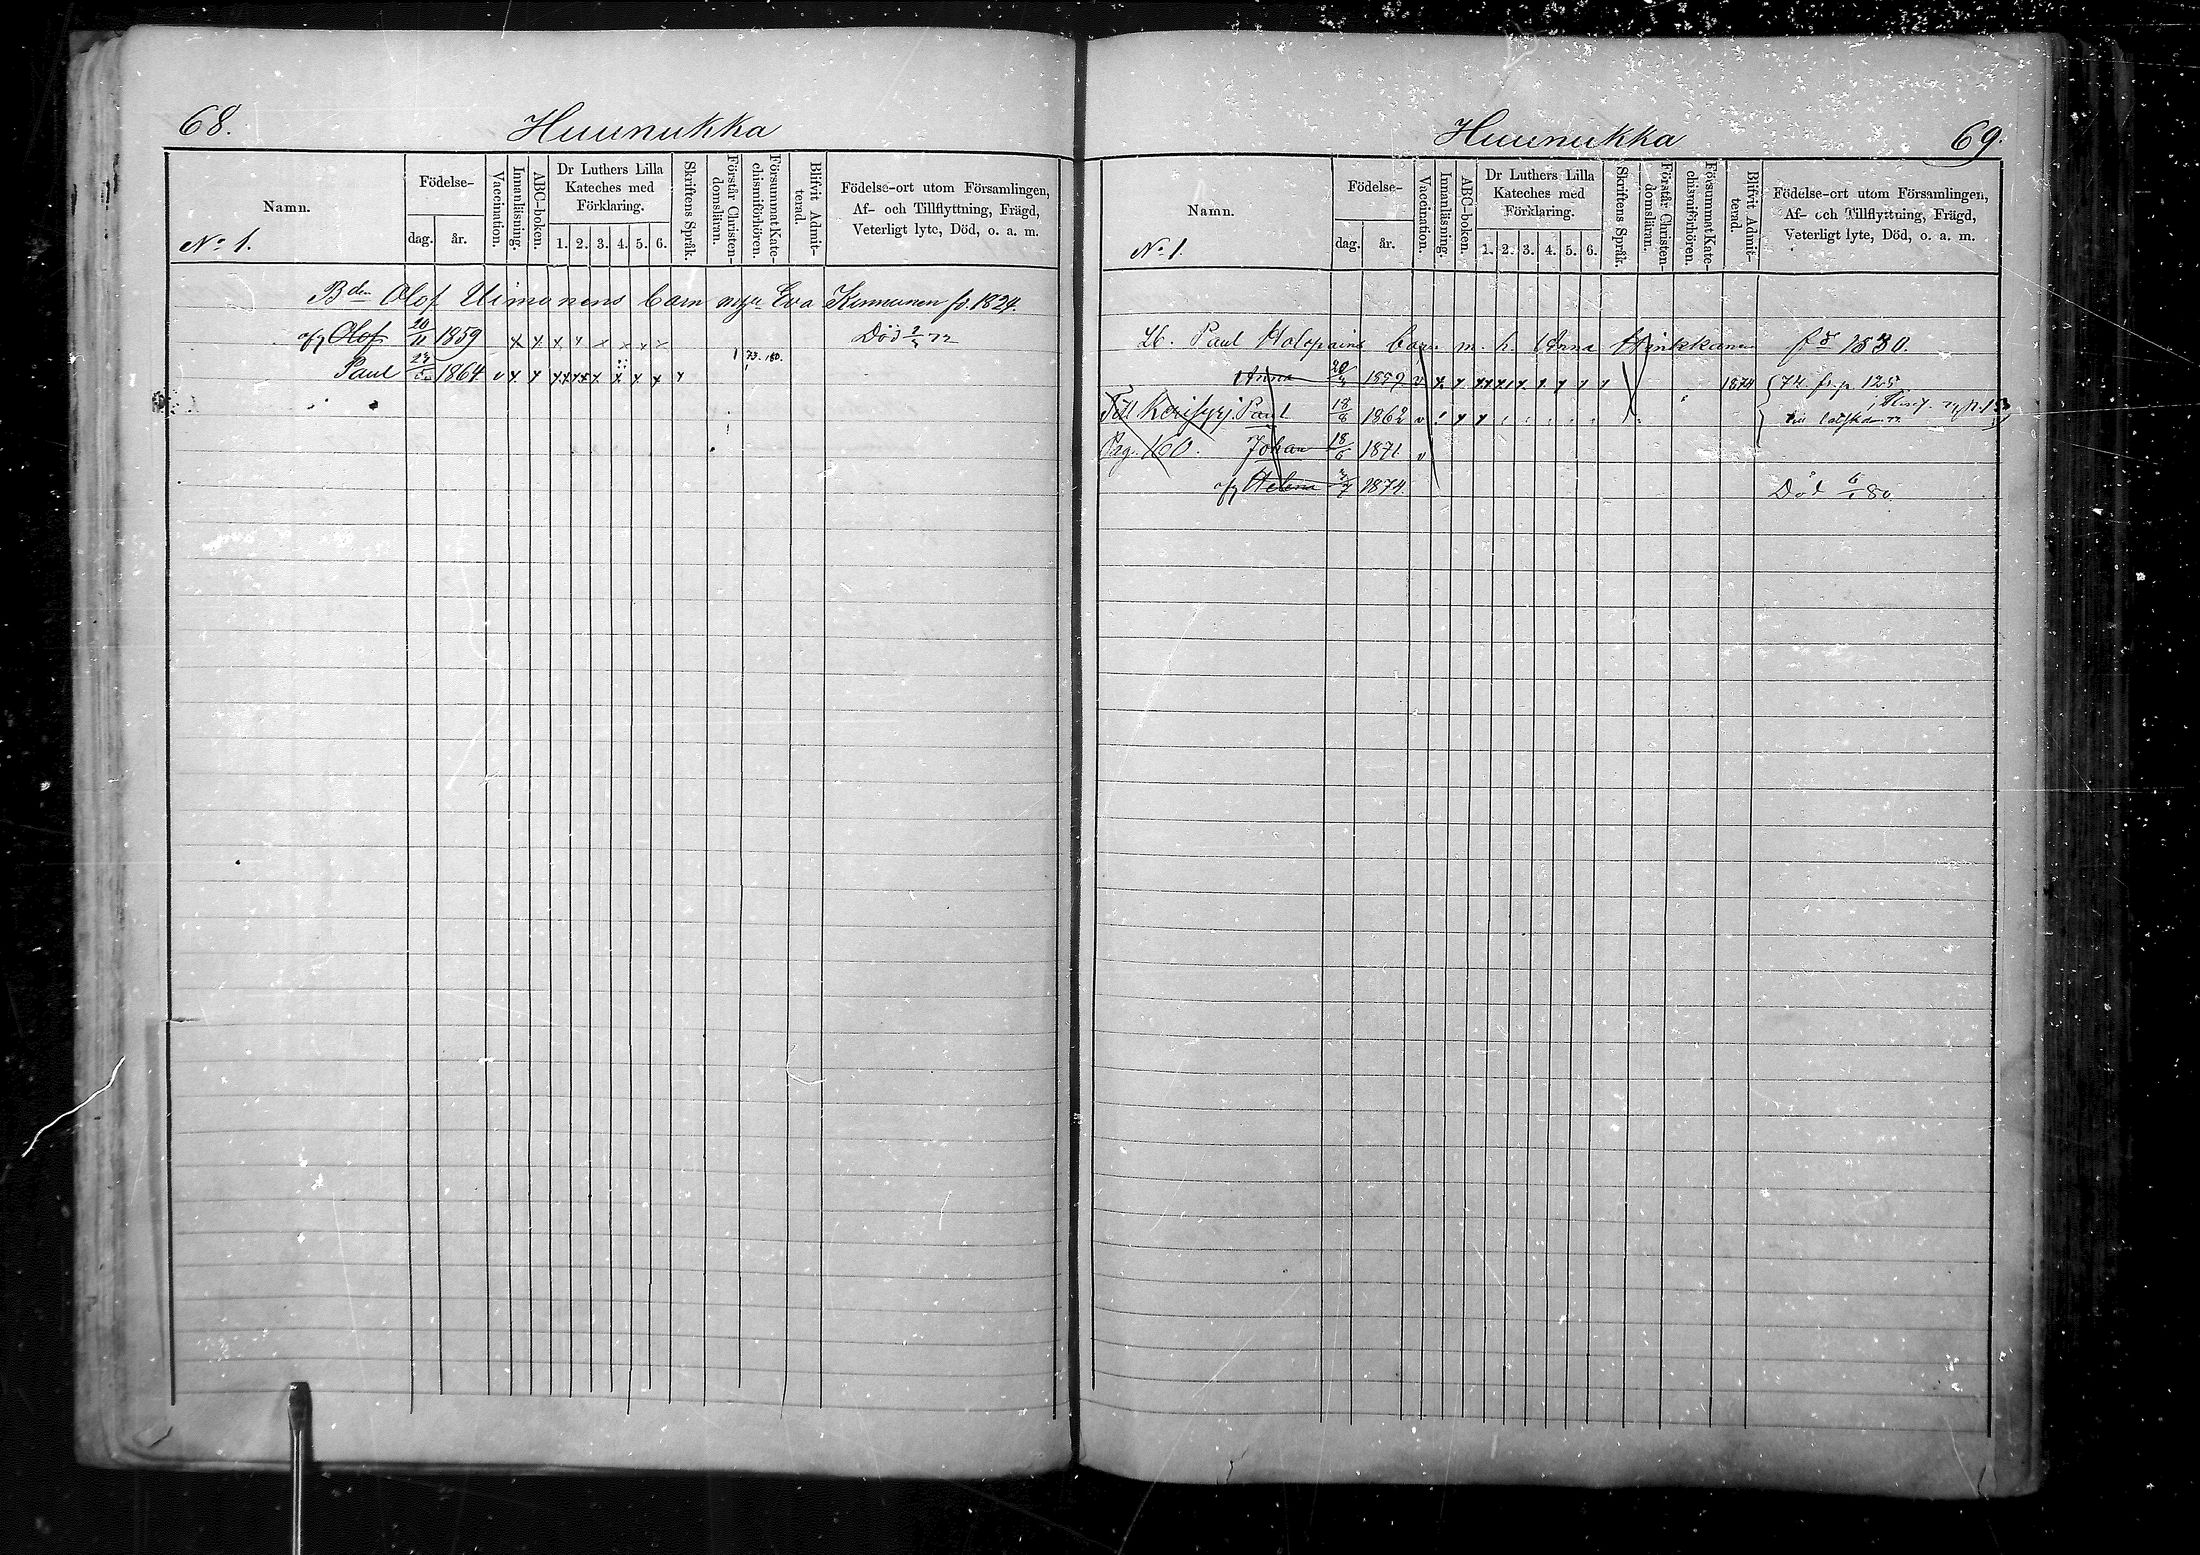 68.
Huunukka
Namn.
Födelse-
dag.
år.
Vaccination.
Innanläsning.
ABC-boken.
Dr Luthers Lilla
Kateches med
Förklaring.
1. 2. 3. 4. 5. 6.
Skriftens Språk.
Förstår Christen-
domsläran.
Försummat Kate-
chismiförhören.
Blifvit Admit-
terad.
Födelse-ort utom Församlingen,
Af- och Tillflyttning, Frägd,
Veterligt lyte, Död, o. a. m.
No 1.
Bden Olof Uimonens barn Eva Kinnunen fö. 1824.
Olof 20/11 1859 x x x x x x x x Död
Paul 1864 v x x
Huunukka
69.
Namn.
Födelse-
dag.
år.
Vaccination.
Innanläsning.
ABC-boken.
Dr Luthers Lilla
Kateches med
Förklaring.
1. 2. 3. 4. 5. 6.
Skriftens Språk.
Förstår Christen-
domsläran.
Försummat Kate-
chismiförhören.
Blifvit Admit-
terad.
Födelse-ort utom Församlingen,
Af- och Tillflyttning, Frägd,
Veterligt lyte, Död, o. a. m.
No 1.
Paul Holopains barn m. h. Anna 1830.
Anna 1859 v 1874 74 fr. p. 125
Till Kerisyrj Paul 18/8 1862 v
Pag. 160. Johan 18/6 1871 v
Helena 1874. Död 80.